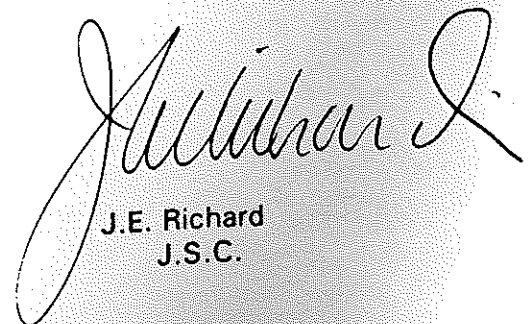 J.E. Richard
J.S.C.